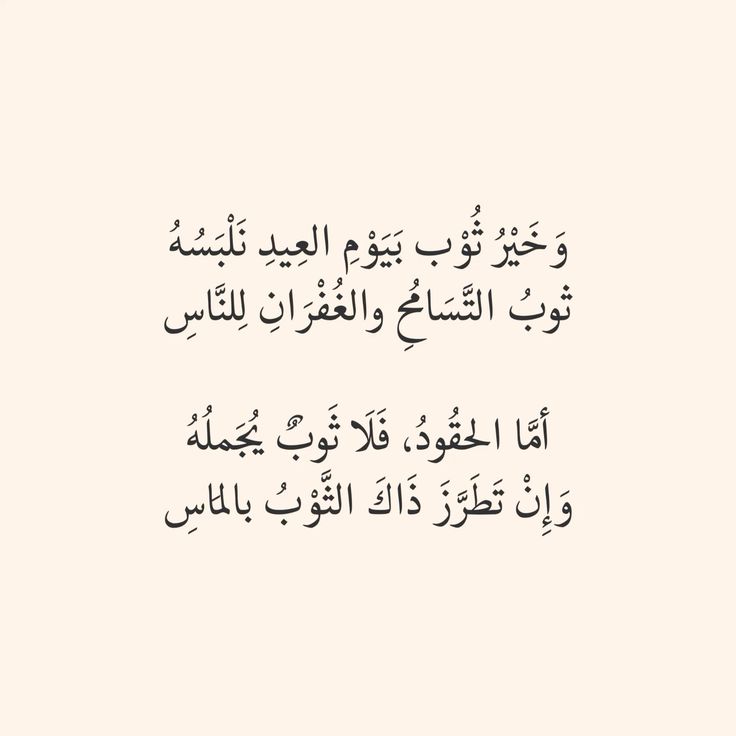 وَخَيْرُ ثُوْب بَيَوْمِ العِيدِ نَلْبَسُهُ
ثوبُ التَّسَامُحِ والغُفْرَانِ لِلنَّاسِ
أمَّا الحقُودُ، فَلَا ثَوبٌ يُجَملُهُ
وَإِنْ تَطَرَّزَ ذَاكَ الثَّوْبُ بالماسِ